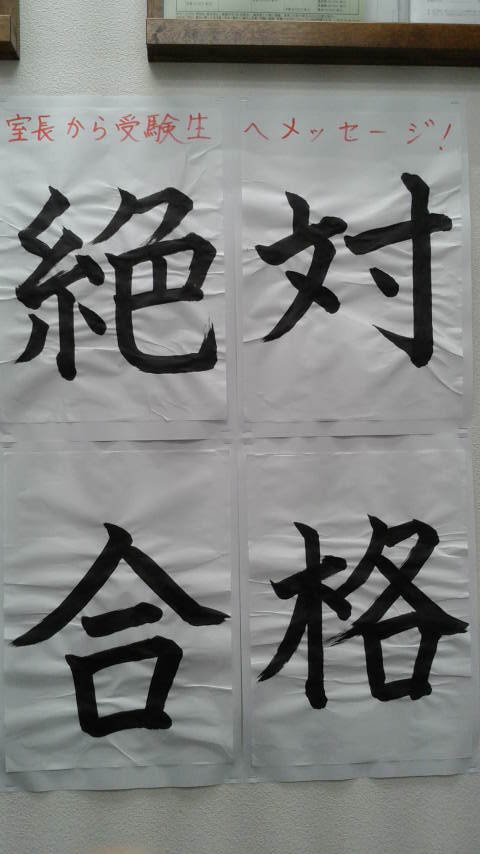 室長から受験生へメッセージ!
絶対
合格